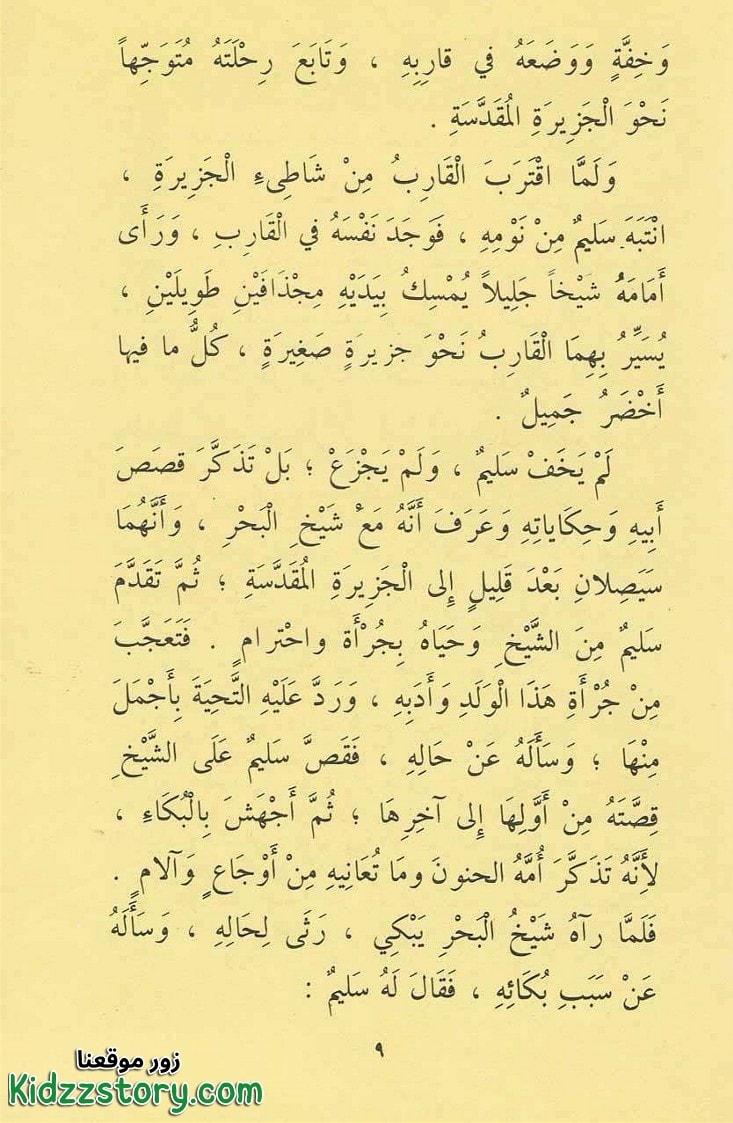 وَخِفَّةٍ وَوَضَعَهُ في قارِبِهِ ، وَتَابَعَ رِحْلَتَهُ مُتَوَجِّهاً
نَحْوَ الْجَزِيرَةِ المُقَدَّسَةِ .
وَلَمَّا اقْتَرَبَ الْقَارِبُ مِنْ شَاطِىءِ الْجَزِيرَةِ ،
انْتَبَهَ سَلِيمٌ مِنْ نَوْمِهِ ، فَوَجَدَ نَفْسَهُ في الْقَارِبِ ، وَرَأَى
أَمَامَهُ شَيْخاً جَلِيلاً يُمْسِكُ بِيَدَيْهِ مِجْذَافَيْنِ طَوِيلَيْنِ ،
يُسَيِّرُ بِهِمَا الْقَارِبُ نَحْوَ جزيرَةٍ صَغِيرَةٍ ، كُلُّ ما فيها
أَخْضَرُ جَمِيلٌ .
لَمْ يَخَفْ سَلِيمٌ ، وَلَمْ يَجْزَعْ ؛ بَلْ تَذَكَّرَ قصَصَ
أَبِيهِ وَحِكَاياتِهِ وَعَرَفَ أَنَّهُ مَعْ شَيْخِ الْبَحْرِ ، وَأَنَّهُمَا
سَيَصِلانِ بَعْدَ قَلِيلٍ إِلى الْجَزِيرَةِ المُقَدَّسَةِ ؛ ثُمَّ تَقَدَّمَ
سَلِيمٌ مِنَ الشَّيْخِ وَحَيَاهُ بِجُرْأَة واحْترامٍ . فَتَعَجَّبَ
مِنْ جُرْأَةِ هَذَا الْوَلَدِ وَأَدَبِهِ ، وَرَدَّ عَلَيْهِ التَّحِيَةَ بِأَجْمَلَ
مِنْهَا ؛ وَسَأَلَهُ عَنْ حَالِهِ ، فَقَصَّ سَلِيمٌ عَلَى الشَّيْخِ
قِصَّتَهُ مِنْ أَوَّلِهَا إِلى آخِرِهَا ؛ ثُمَّ أَجْهَشَ بِالْبُكَاءِ ،
لأَنَّهُ تَذَكَّرَ أُمَّهُ الحنونَ ومَا تُعَانِيهِ مِنْ أَوْجَاعٍ وَآلامٍ .
فَلَمَّا رآهُ شَيْخُ الْبَحْرِ يَبْكِي ، رَثَى لِحَالِهِ ، وَسَأَلَهُ
عَنْ سَبَبِ بُكَائِهِ ، فَقَالَ لَهُ سَلِيمٌ :
٩
زور موقعنا
Kidzzstory.com